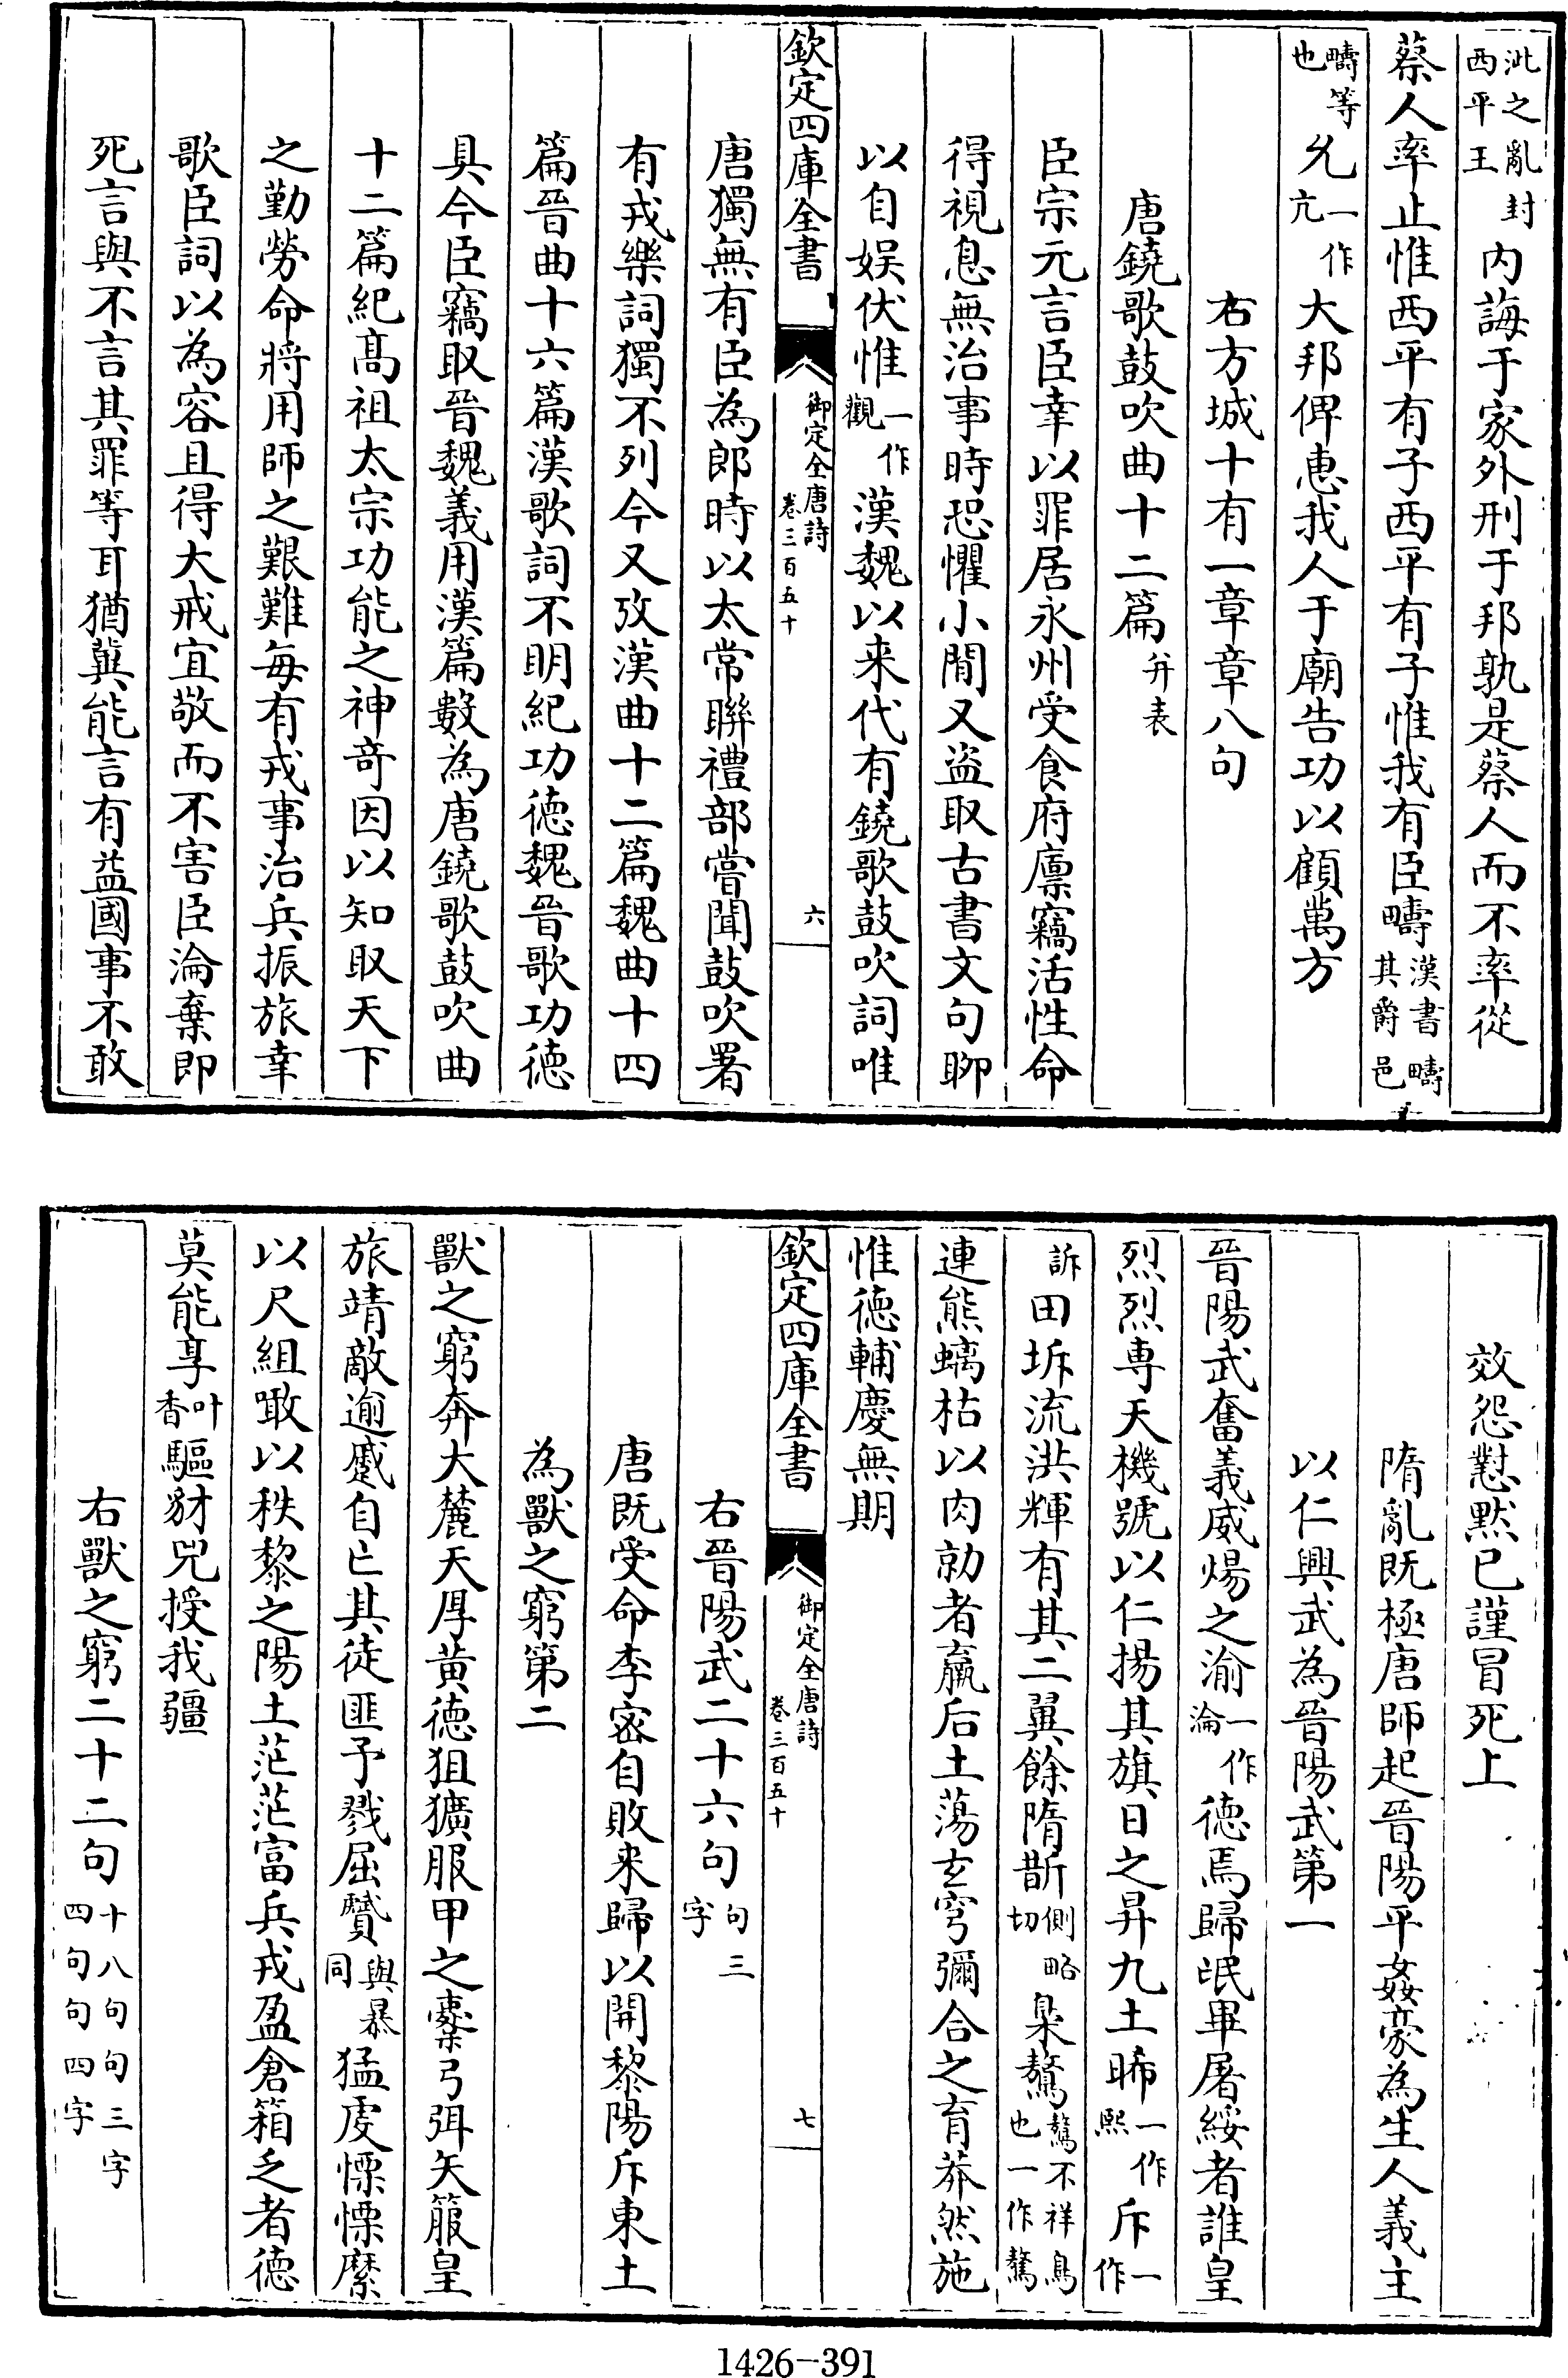 泚之亂封西平王内誨于家外刑于邦孰是蔡人而不率從
蔡人率止惟西平有子西平有子惟我有臣疇漢書疇其爵邑
疇等也允一作亢大邦俾惠我人于廟告功以顧萬方
右方城十有一章章八句
唐鐃歌鼓吹曲十二篇并表
臣宗元言臣幸以罪居永州受食府廪竊活性命
得視息無治事時恐懼小閒又盗取古書文句聊
以自娱伏惟一作觀漢魏以来代有鐃歌鼓吹詞唯
欽定四庫全書
御定全唐詩
卷三百五十
六
唐獨無有臣為郎時以太常聯禮部嘗聞鼓吹署
有戎樂詞獨不列今又攷漢曲十二篇魏曲十四
篇晉曲十六篇漢歌詞不明紀功德魏晉歌功德
具今臣竊取晉魏義用漢篇數為唐鐃歌鼓吹曲
十二篇紀髙祖太宗功能之神奇因以知取天下
之勤勞命將用師之艱難每有戎事治兵振旅幸
歌臣詞以為容且得大戒宜敬而不害臣淪棄即
死言與不言其罪等耳猶冀能言有益國事不敢
效怨懟黙已謹冒死上
隋亂既極唐師起晉陽平姦豪為生人義主
以仁興武為晉陽武第一
晉陽武奮義威煬之渝一作淪德焉歸氓畢屠綏者誰皇
烈烈専天機號以仁揚其旗日之昇九土晞一作熙斥一作
訴田圻流洪輝有其二翼餘隋斮側略切梟驁驁不祥鳥也一作鷔
連熊螭枯以肉勍者羸后土蕩玄穹彌合之育莽然施
惟德輔慶無期
欽定四庫全書
御定全唐詩
卷三百五十
七
右晉陽武二十六句句三字
唐既受命李密自敗来歸以開黎陽斥東土
為獸之窮第二
獸之窮奔大麓天厚黄德狙獷服甲之櫜弓弭矢箙皇
旅靖敵逾蹙自亡其徒匪予戮屈贙與暴同猛虔慄慄縻
以尺組噉以秩黎之陽土茫茫富兵戎盈倉箱乏者德
莫能享叶香驅豺兕授我疆
右獸之窮二十二句十八句句三字四句句四字
1426-391